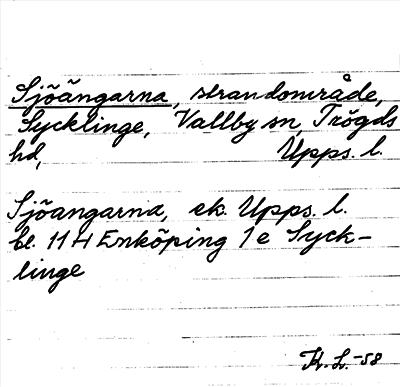 Sjöängarna, strandområde,
Sycklinge, Vallby sn, Trögds
hd, Upps. l.
Sjöangarna, ek. Upps. l.
bl. 114 Enköping 1 e Syck-
linge
K.L.-58